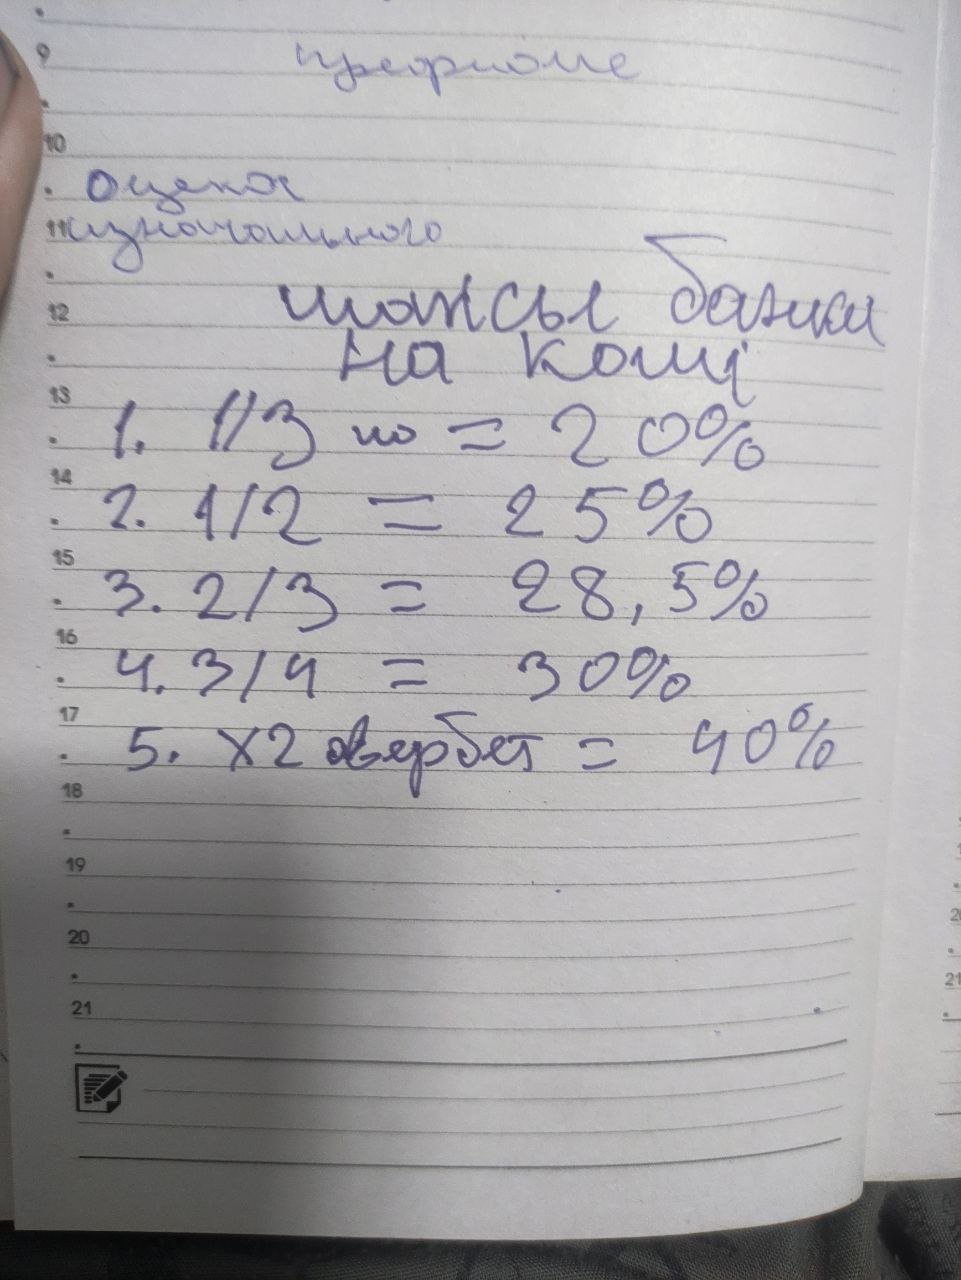 9
префлопе
10
оценка
11 изначального
12
шансы банка
на колл
13
1. 1/3 по = 20%
14
2. 1/2 = 25%
15
3. 2/3 = 28,5%
16
4. 3/4 = 30%
17
5. x2 овербет = 40%
18
19
20
21
20
21